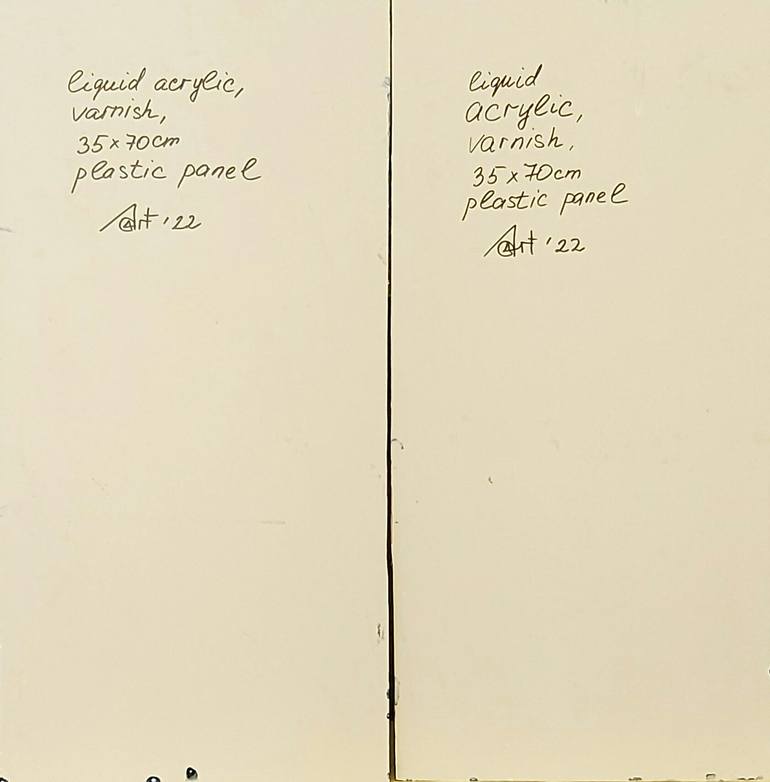 liquid acrylic,
varnish,
35x70cm
plastic panel
Art '22
liquid
acrylic,
varnish,
35x70cm
plastic panel
Art '22